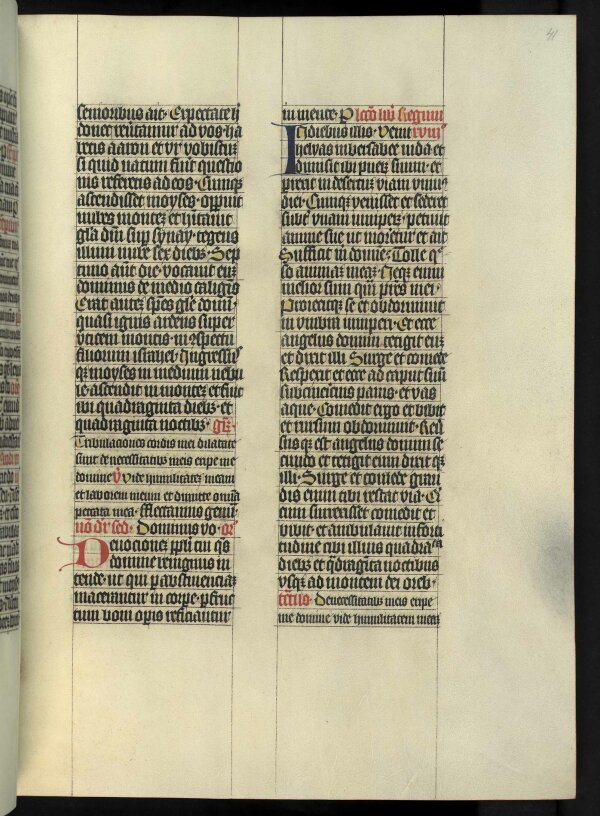 senioribus ait. Expectate h
donec reütamur ad vos. ha
betis aaron et vr vobiscū
si quid natum fuīt questio
nis referetis ad eos. Cumqꝫ
ascendisset moyses. opuit
nubes montē et hītauit
glā dn̄i sup synay. tegens
illum nube sex diebꝫ. Sep
timo aūt die vocauit eūꝫ
dominus de medio caligīs
Erat autē spēs glē domī.
quasi ignis ardens super
vticem montis. in 9spectu
filiorum israhel. Ingressusꝗ
qꝫ moyses in medium nebu
le. ascendit in montē. et fuit
ibi quadraginta diebꝫ. et
quadraginta noctibꝫ. gr̄.
Tribulationes cordis mei dilatate
sunt de necessitatibꝫ meis eripe me
domine v̄ Vide humilitatē meam
et laborem meum et dimitte omīa
peccata mea. Flectamus genū.
nō dr̄ sed. Dominus vo. or̄
Deuotionē ppl̄i tui qs̄
domine benignus in
tende. ut qui p abstinenciā
macerantur in corpe. p fruc
tum boni opis reficiantur
in mente. P lectō libri Regum
In diebus illis. Venit xviij
helyas in bersabee iuda. et
dimisit ibi puerū suum. et
prexit in desertū viam vniꝰ
diei. Cumqꝫ venisset et sederet
subt̄ vnam iunipeꝝ. petiuit
anime sue ut moretur et ait
Sufficit m̄ domine. Tolle qꝫ
so animā meā. Neqꝫ enim
melior sum quā pr̄es mei.
Proiecitqꝫ se et obdormiuit
in vmbra iunipi. Et ecce
angelus domini tetigit eūꝫ
et dixit illi Surge et comede
Respexit et ecce ad caput suū
subcinericius panis. et vas
aque. Comedit ergo et bibit
et rursum obdormiuit. Reuer
susqꝫ est angelus domini se
cundo et tetigit eum dixitqꝫ
illi. Surge et comede. gran
dis enim tibi restat via. Q
cum surrexisset comedit et
bibit. et ambulauit in forti
tudine cibi illius quadraᵗᵃ
diebꝫ et q̄draginta noctibus
vsqꝫ ad montem dei oreb.
tc̄tus. De necessitatibꝫ meis eripe
me domine vide humilitatem meā
41